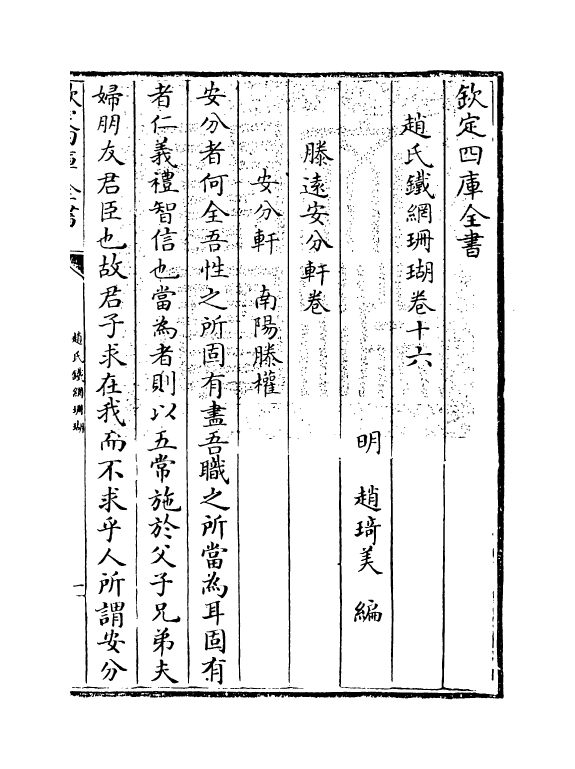 欽定四庫全書
趙氏鐵網珊瑚卷十六
明 趙琦美 編
滕遠安分軒卷
安分軒 南陽滕權
安分者何全吾性之所固有盡吾職之所當為耳固有
者仁義禮智信也當為者則以五常施於父子兄弟夫
婦朋友君臣也故君子求在我而不求乎人所謂安分
欽定四庫全書
趙氏鐵網珊瑚
一